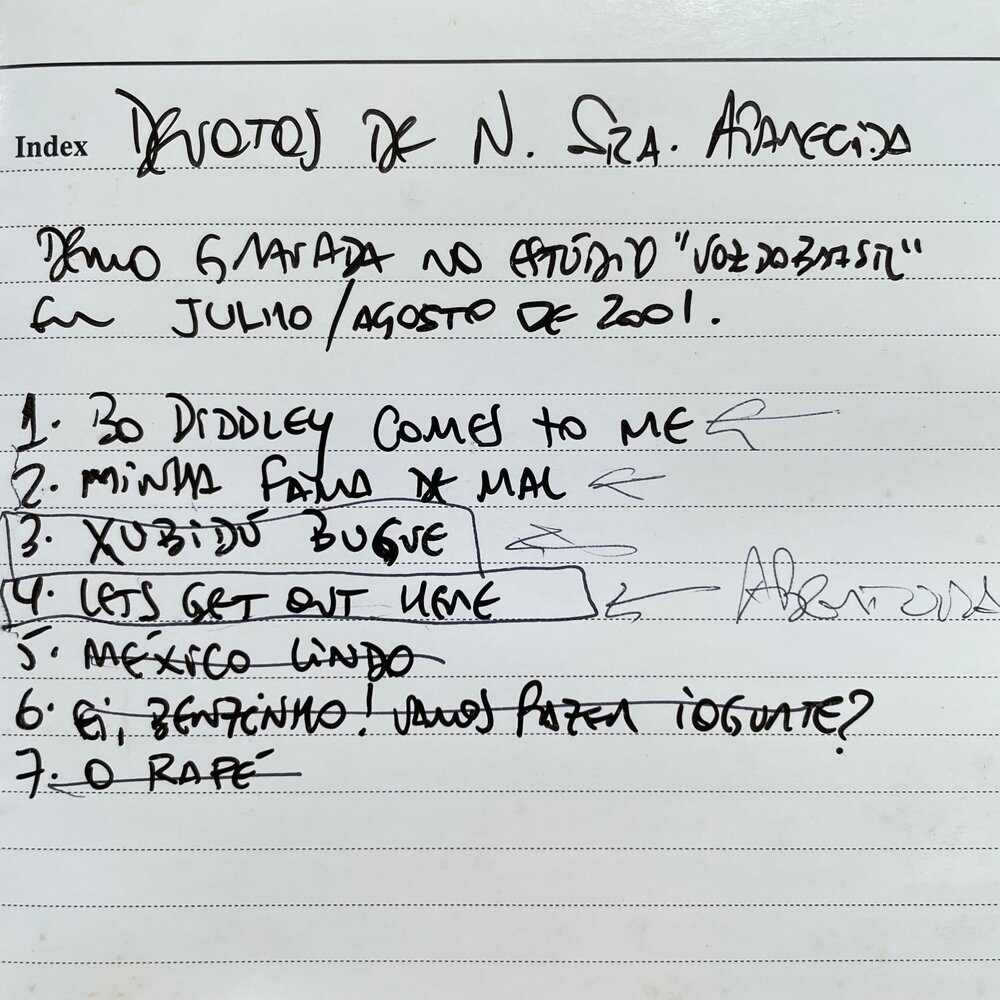 Index DEVOTOS DE N. SRA. APARECIDA
DEMO GRAVADA NO ESTÚDIO "VOZ DO BRASIL"
EM JULHO/AGOSTO DE 2001.
1. BO DIDDLEY COMES TO ME
2. MINHA FAMA DE MAL
3. XUBIDÚ BUGUE
4. LETS GET OUT HERE
5. MÉXICO LINDO
6. EI, BENZINHO! VAMOS FAZER IOGURTE?
7. O RAPÉ